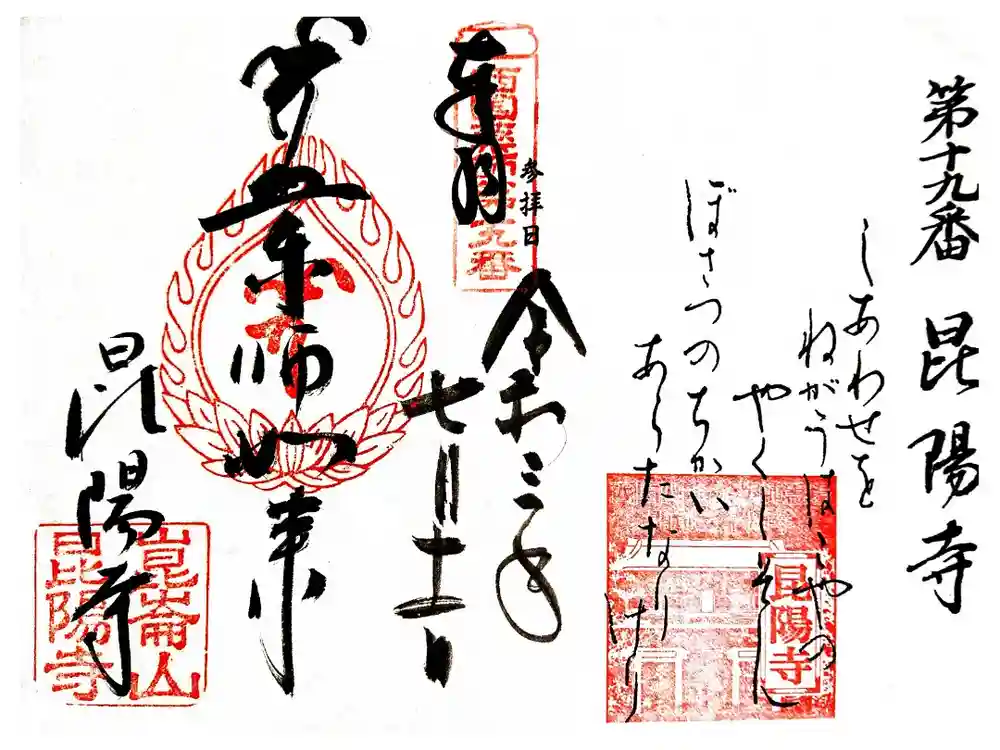 第十九番 昆陽寺
しあわせを
ねがうはこやの
やくしそん
ぼさつのちかい
あらたなりけり
昆陽寺
奉拝
西国薬師第十九番
参拝日
令和三年
七月十二日
薬師如来
昆陽寺
崑崙山
昆陽寺